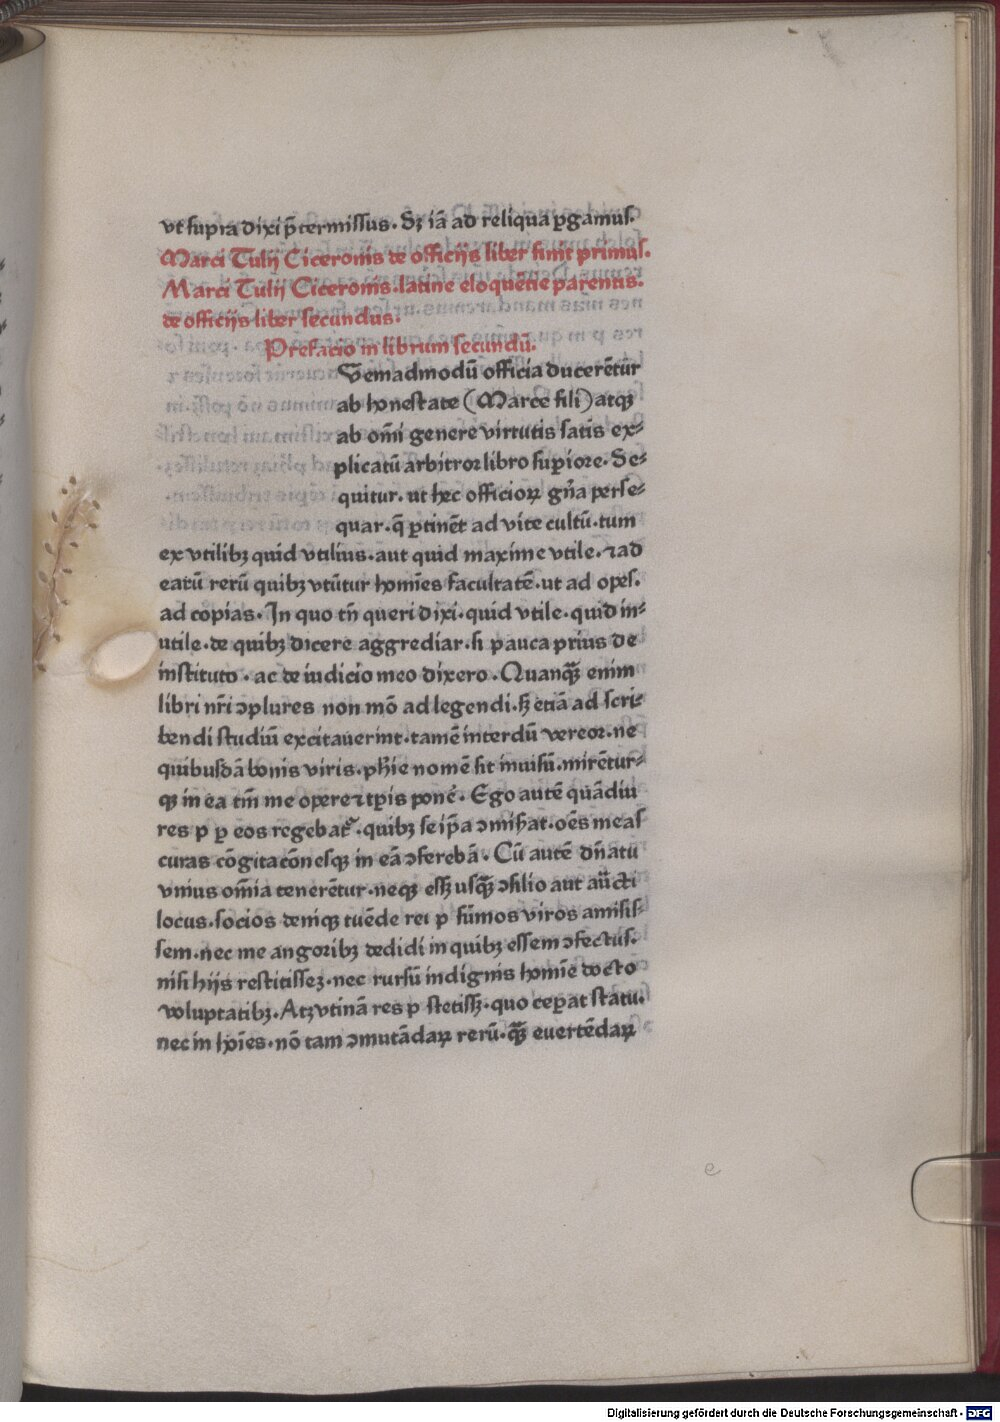 vt supra dixi p̄termissus. Sꝫ iā ad reliqua ꝑgamus.
Marci Tulij Ciceronis de officijs liber finit primus.
Marci Tulij Ciceronis. latine eloquētie parentis.
de officijs liber secundus.
Prefacio in librum secundū.
Vemadmodū officia ducerētur
ab honestate (Marce fili) atqꝫ
ab om̄i genere virtutis satis ex-
plicatū arbitror libro superiore. Se-
quitur. ut hec officioꝝ gn̄a perse-
quar. q̄ ꝑtinēt ad vite cultū. tum
ex vtilibꝫ quid vtilius. aut quid maxime vtile. ⁊ ad
eatū rerū quibꝫ vtūtur homīes facultatē. ut ad opes.
ad copias. In quo tn̄ queri dixi. quid vtile. quid in-
utile. de quibꝫ dicere aggrediar. si pauca prius de
instituto. ac de iudicio meo dixero. Quanqꝫ̄ enim
libri nr̄i ↄplures non mō ad legendi. sꝫ etiā ad scri-
bendi studiū excitauerint. tamē interdū vereor. ne
quibusdā bonis viris. ph̄ie nomē sit inuisū. mirētur-
qꝫ in ea tm̄ me opere ⁊ tꝑis ponē. Ego autē quādiu
res p ꝑ eos regebat᷑. quibꝫ se ip̄a ↄmiẜat. oēs meas
curas cōgitacōnesqꝫ in eā ↄferebā. Cū autē dn̄atu
vnius om̄ia tenerētur. neqꝫ esſꝫ usqꝫ̄ ↄsilio aut au̅cti
locus. socios deniqꝫ tuēde rei p sūmos viros amisis-
sem. nec me angoribꝫ dedidi in quibꝫ essem ↄfectus.
nisi hijs restitisseꝫ. nec rursū indignis homīe docto
voluptatibꝫ. Atꝫ vtinā res p stetisſꝫ. quo ceꝑat statu.
nec in hoīes. nō tam ↄmutādaꝝ rerū. qꝫ̄ euertēdaꝝ
e
Digitalisierung gefördert durch die Deutsche Forschungsgemeinschaft - DFG